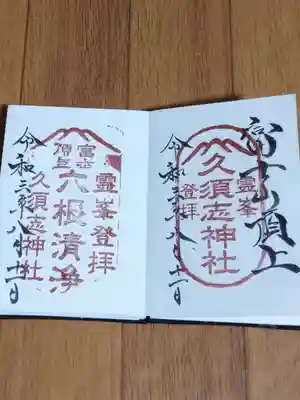 富士山頂上
霊峯
久須志神社
登拝
令和三年八月十一日
霊峯登拝
富士
頂上
六根清浄
久須志神社
令和三年八月十一日